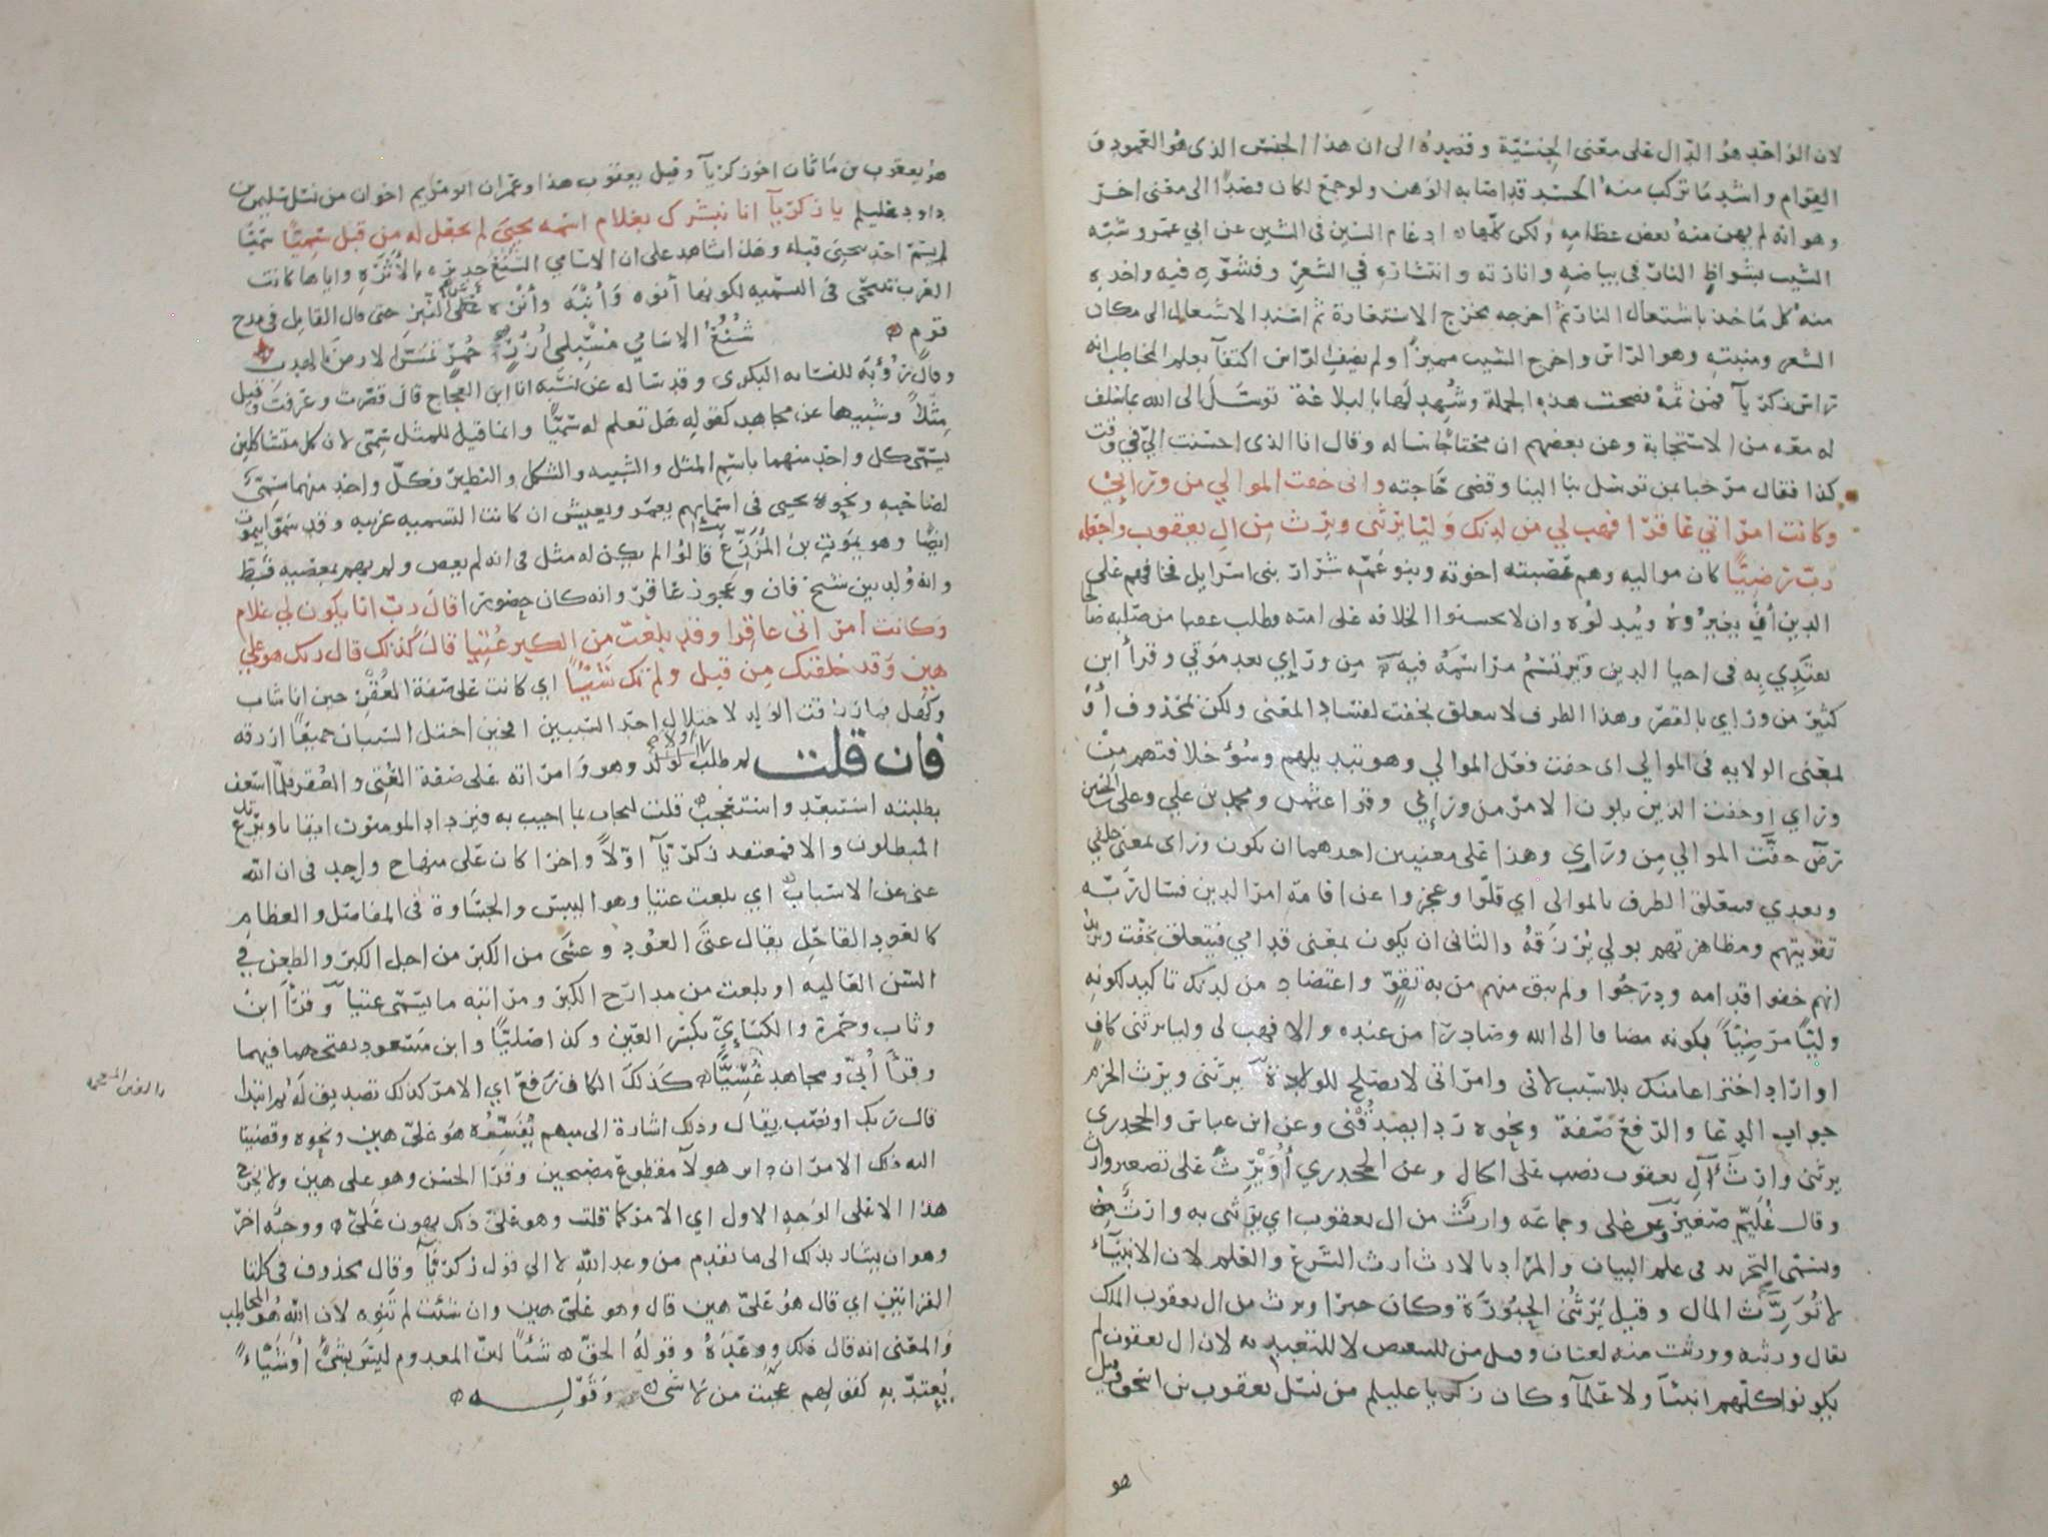 لان الواحد هو الدال على معنى الجنسية وقصده الى ان هذا الجنس الذى هو العمود و
القوام واشد ما تركب منه الجسد قد اصابه الوهن ولو جمع لكان قصدا الى معنى اخر
وهو انه لم يهن منه بعض عظامه ولكن كلها ادغام السين فى الشين عن ابي عمرو شبه
الشيب بشواظ النار فى بياضه وانارته وانتشاره في الشعر وفشوه فيه واخذه
منه كل ماخذ باشتعال النار ثم اخرجه مخرج الاستعارة ثم اسند الاشتعال الى مكان
الشعر ومنبته وهو الراس واخرج الشيب مميزا ولم يضف الراس اكتفآ بعلم المخاطب انه
راس زكريآ فمن ثمة فصحت هذه الجملة وشهد لها بالبلاغة توسل الى الله بما سلف
له معه من الاستجابة وعن بعضهم ان محتاجا ساله وقال انا الذى احسنت الي في وقت
كذا فقال مرحبا بمن توسل بنا الينا وقضى حاجته وانى خفت الموالي من ورائي
وكانت امراتي عاقرا فهب لي من لدنك وليا يرثنى ويرث من ال يعقوب واجعله
رب رضيا كان مواليه وهم عصبته اخوته وبنو عمه شرار بنى اسرايل فخافهم على
الدين ان يغيروه ويبدلوه وان لا يحسنوا الخلافه على امته فطلب عقبا من صلبه صالحا
يقتدي به فى احيا الدين ويرتسم مراسمه فيه من ورإي بعد موتي وقرأ ابن
كثير من وراي بالقصر وهذا الظرف لا يتعلق بخفت لفساد المعنى ولكن بمحذوف أو
لمعنى الولايه فى الموالي اى خفت فعل الموالي وهو تبديلهم وسوء خلافتهم من
وراي او خفت الذين يلون الامر من ورإئي وقرا عثمن ومحمد بن علي وعلى بن الحسين
رضۤ خفت الموالي من وراي وهذا على معنيين احدهما ان يكون وراى بمعنى خلفي
وبعدي فيتعلق الظرف بالموالى اي قلوا وعجزوا عن اقامة امر الدين فسال ربه
تقويتهم ومظاهرتهم بولي يرزقه والثانى ان يكون بمعنى قدامي فيتعلق بخفت ويريد
انهم خفوا قدامه ودرجوا ولم يبق منهم من به تقو واعتضاد من لدنك تاكيد لكونه
وليا مرضيا بكونه مضافا الى الله وصادرا من عنده والا فهب لى وليا يرثنى كاف
او اراد اختراعا منك بلا سبب لانى وامراتى لا نصلح للولادة يرثنى ويرث الجزم
جواب الدعا والرفع صفة ونحوه ردا يصدقنى وعن ابن عباس والجحدرى
يرثنى وارث آل يعقوب نصب على الحال وعن الجحدري أويرث على تصغير وارث
وقال غليم صغير وعن على وجماعه وارث من ال يعقوب اي يرثنى به وارث
ويسمى التجريد فى علم البيان والمراد بالارث ارث الشرع والعلم لان الانبيآء
لا تورث المال وقيل يرثنى الحبورة وكان حبرا ويرث من ال يعقوب الملك
يقال ورثه وورثت منه لغتان وقيل من للتبعيض لا للتعديه لان ال يعقوب لم
يكونوا كلهم انبيآ ولا علمآ وكان زكريا عليلم من نسل يعقوب بن اسحق وقيل
هو
هو يعقوب بن ماثان اخو زكريآ وقيل يعقوب هذا وعمران ابو مريم اخوان من نسل سليمن بن
داود عليلم يا زكريآ انا نبشرك بغلام اسمه يحيى لم نجعل له من قبل سميا سميا
لم يسم احد بيحيى قبله وهذا شاهد على ان الاسامي السنع جديرة بالأثرة واياها كانت
العرب تنتحى فى التسميه لكونها أنوه وأنبه وأنزه عن النبز حتى قال القايل فى مدح
قوم سنع الاسامي مسبلي أزر حمر تمس الارض بالهدب
وقال رؤبة للنسابه البكرى وقد ساله عن نسبه انا ابن العجاج قال قصرت وعرفت وقيل
مثلا وشبيها عن مجاهد كقوله هل تعلم له سميا وانما قيل للمثل سمى لان كل متشاكلين
يسمى كل واحد منهما باسم المثل والشبيه والشكل والنظير فكل واحد منهما سمى
لصاحبه ونحو يحيى فى اسمايهم يعمر ويعيش ان كانت التسميه عربيه وقد سموا بيموت
ايضا وهو يموت بن المزرع قالوا لم يكن له مثل فى انه لم يعص ولم يهم بمعصيه قط
وانه ولد بين شيخ فان وعجوز عاقر وانه كان حصورا قال رب انا يكون لى غلام
وكانت امراتى عاقرا وقد بلغت من الكبر عتيا قال كذلك قال ربك هو علي
هين وقد خلقتك من قبل ولم تك شيئا اي كانت على صفة العقر حين انا شاب
وكهل فما رزقت الولد لاختلال احد السببين افحين اختل السببان جميعا ارزقه
فان قلت لم طلب اولا الولد وهو وامراته على صفة العتى والعقر فلما اسعف
بطلبته استبعد واستعجب قلت ليجاب بما اجيب به فيزداد المومنون ايقانا ويرتدع
المبطلون والا فمعتقد زكريآ اولا واخرا كان على منهاج واحد فى ان الله
غنى عن الاسباب اي بلغت عتيا وهو اليبس والجساوة فى المفاصل والعظام
كالعود القاحل يقال عتى العود وعسى من الكبر من اجل الكبر والطعن في
السن العاليه او بلغت من مدارج الكبر ومراتبه ما يسمى عتيا وقرأ ابن
وثاب وحمزة والكسإي بكسر العين وكذا صليا وابن مسعود بفتحهما فيهما
وقرأ أبى ومجاهد عسيا كذلك الكاف رفع اي الامر كذلك تصديق له ثم ابتدا
قال ربك او نصب بقال وذلك اشارة الى مبهم يفسره هو على هين ونحوه وقضينا
اليه ذلك الامر ان دابر هولآ مقطوع مصبحين وقرا الحسن وهو على هين ولا يخرج
هذا الا على الوجه الاول اي الامر كما قلت وهو على ذلك يهون على ووجه اخر
وهو ان يشار بذلك الى ما تقدم من وعد الله لا الي قول زكريآ وقال محذوف فى كلتا
القراتين اي قال هو على هين قال وهو على هين وان شئت لم تنوه لان الله هو المخاطب
والمعنى انه قال ذلك ووعده وقوله الحق شيئا لان المعدوم ليس بشئ أو شياء
يعتد به كقولهم عجبت من لا شى وقوله